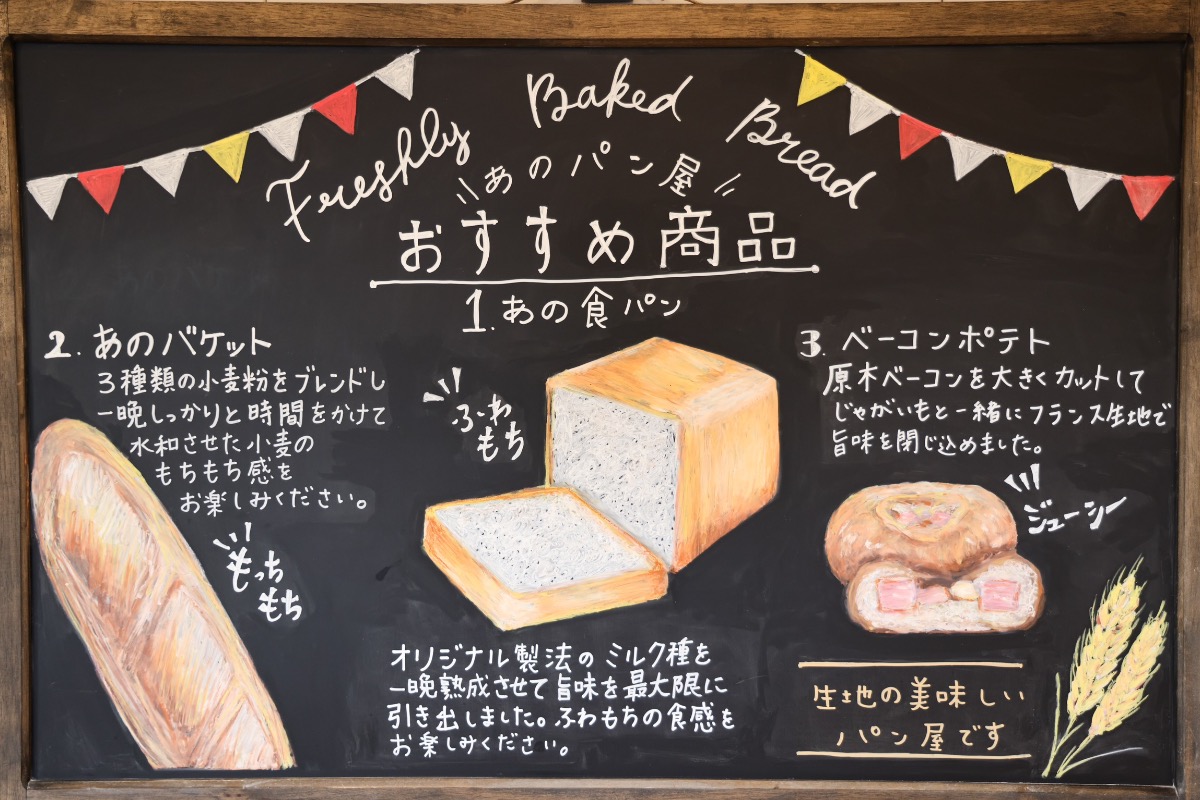 Freshly Baked Bread
あのパン屋
おすすめ商品
1.あの食パン
ふわ
もち
オリジナル製法のミルク種を
一晩熟成させて旨味を最大限に
引き出しました。ふわもちの食感を
お楽しみください。
2.あのバケット
3種類の小麦粉をブレンドし
一晩しっかりと時間をかけて
水和させた小麦の
もちもち感を
お楽しみください。
もっち
もち
3.ベーコンポテト
原木ベーコンを大きくカットして
じゃがいもと一緒にフランス生地で
旨味を閉じ込めました。
ジューシー
生地の美味しい
パン屋です